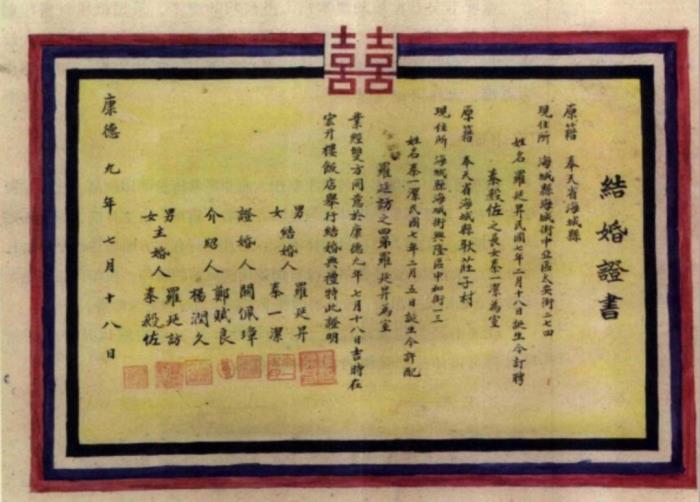 囍
結婚證書
原籍 奉天省海城縣
現住所 海城縣海城街中
姓名 羅廷昇民國七年二月十八日誕生今訂聘
秦毅佐之長女秦一潔為室
原籍 奉天省海城縣
現住所 海城縣海城街興隆區中和街一三
姓名秦一潔民國七年二月五日誕生今許配
羅廷訪之四弟羅廷昇為室
業經雙方同意於康德九年七月十八日吉時在
宏升樓飯店舉行結婚典禮特此證明
男結婚人 羅廷昇
女 秦一潔
證婚人 關佩璋
介紹人 鄭賦良
楊潤久
男主婚人 羅廷訪
女 秦毅佐
康德九年七月十八日